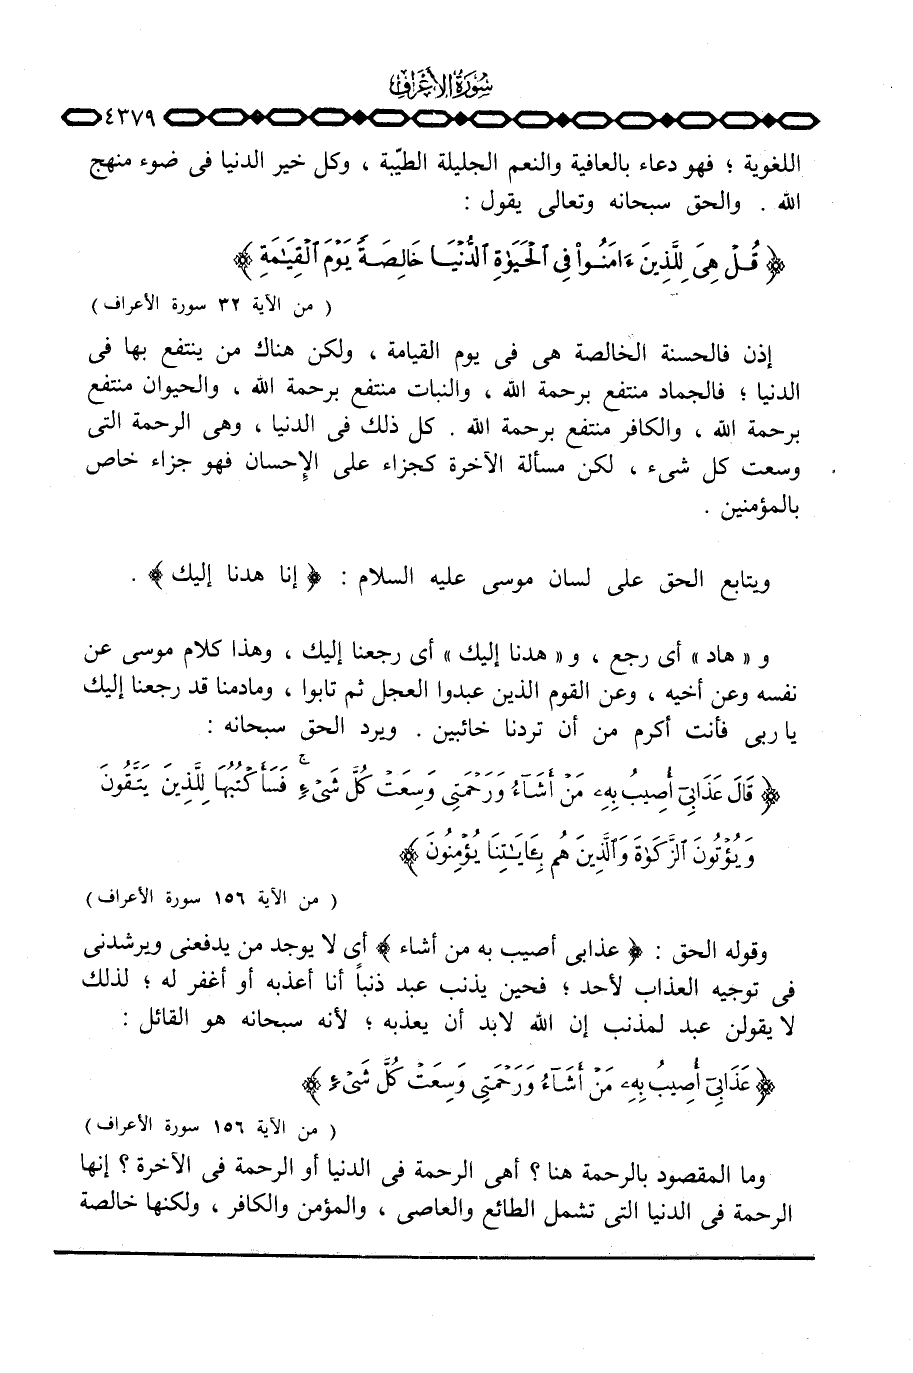 سُورَةُ الأَعْرَافِ
٤٣٧٩
اللغوية ؛ فهو دعاء بالعافية والنعم الجليلة الطيّبة ، وكل خير الدنيا فى ضوء منهج
الله . والحق سبحانه وتعالى يقول :
﴿ قُلْ هِىَ لِلَّذِينَ ءَامَنُواْ فِى ٱلْحَيَوٰةِ ٱلدُّنْيَا خَالِصَةً يَوْمَ ٱلْقِيَٰمَةِ ﴾
( من الآية ٣٢ سورة الأعراف )
إذن فالحسنة الخالصة هى فى يوم القيامة ، ولكن هناك من ينتفع بها فى
الدنيا ؛ فالجماد منتفع برحمة الله ، والنبات منتفع برحمة الله ، والحيوان منتفع
برحمة الله ، والكافر منتفع برحمة الله . كل ذلك فى الدنيا ، وهى الرحمة التى
وسعت كل شىء ، لكن مسألة الآخرة كجزاء على الإِحسان فهو جزاء خاص
بالمؤمنين .
ويتابع الحق على لسان موسى عليه السلام : ﴿ إنا هدنا إليك ﴾ .
و « هاد » أى رجع ، و « هدنا إليك » أى رجعنا إليك ، وهذا كلام موسى عن
نفسه وعن أخيه ، وعن القوم الذين عبدوا العجل ثم تابوا ، ومادمنا قد رجعنا إليك
يا ربى فأنت أكرم من أن تردنا خائبين . ويرد الحق سبحانه :
﴿ قَالَ عَذَابِىٓ أُصِيبُ بِهِۦ مَنْ أَشَآءُ وَرَحْمَتِى وَسِعَتْ كُلَّ شَىْءٍ ۚ فَسَأَكْتُبُهَا لِلَّذِينَ يَتَّقُونَ
وَيُؤْتُونَ ٱلزَّكَوٰةَ وَٱلَّذِينَ هُم بِـَٔايَٰتِنَا يُؤْمِنُونَ ﴾
( من الآية ١٥٦ سورة الأعراف )
وقوله الحق : ﴿ عذابى أصيب به من أشاء ﴾ أى لا يوجد من يدفعنى ويرشدنى
فى توجيه العذاب لأحد ؛ فحين يذنب عبد ذنباً أنا أعذبه أو أغفر له ؛ لذلك
لا يقولن عبد لمذنب إن الله لابد أن يعذبه ؛ لأنه سبحانه هو القائل :
﴿ عَذَابِىٓ أُصِيبُ بِهِۦ مَنْ أَشَآءُ وَرَحْمَتِى وَسِعَتْ كُلَّ شَىْءٍ ﴾
( من الآية ١٥٦ سورة الأعراف )
وما المقصود بالرحمة هنا ؟ أهى الرحمة فى الدنيا أو الرحمة فى الآخرة ؟ إنها
الرحمة فى الدنيا التى تشمل الطائع والعاصى ، والمؤمن والكافر ، ولكنها خالصة